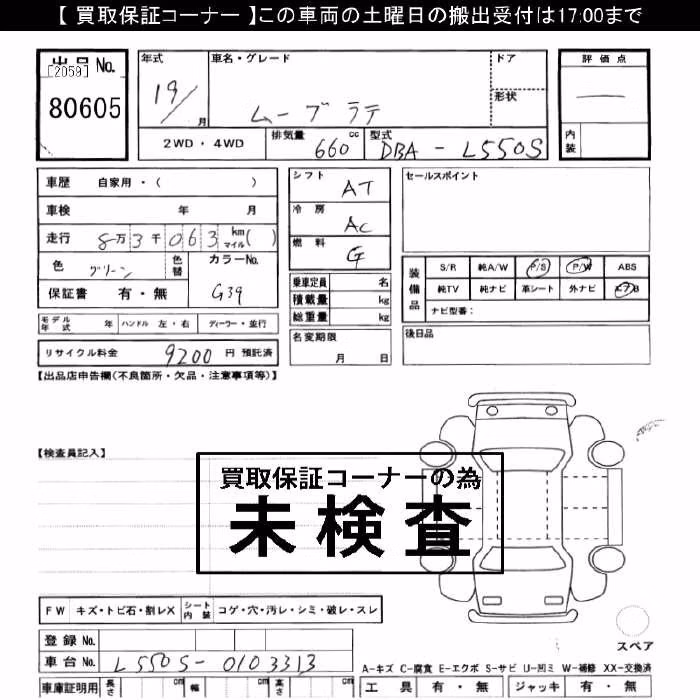 【 買取保証コーナー 】この車両の土曜日の搬出受付は17:00まで
出品 No.
[2059]
80605
年式
19/
月
車名・グレード
ムーブラテ
ドア
形状
2WD ・ 4WD
排気量
660
cc
型式
DBA - L550S
評価点
内装
車歴 自家用・( )
車検 年 月
走行 8万3千063 km マイル( )
色 グリーン
色替
カラーNo.
G39
保証書 有・無
モデル年式 年 ハンドル 左・右 ディーラー・並行
リサイクル料金 9200 円 預託済
シフト AT
冷房 AC
燃料 G
乗車定員 名
積載量 kg
総重量 kg
名変期限
月 日
セールスポイント
装備品
S/R 純A/W P/S P/W ABS
純TV 純ナビ 革シート 外ナビ エアB
ナビ型番:
後日品
【出品店申告欄(不良箇所・欠品・注意事項等)】
【検査員記入】
買取保証コーナーの為
未検査
FW キズ・トビ石・割レX シート内装 コゲ・穴・汚レ・シミ・破レ・スレ
登録 No.
車台 No. L550S-0103313
車庫証明用 長さ cm 幅 cm 高さ cm
スペア
A-キズ C-腐食 E-エクボ S-サビ U-凹ミ W-補修 XX-交換済
工具 有・無 ジャッキ 有・無